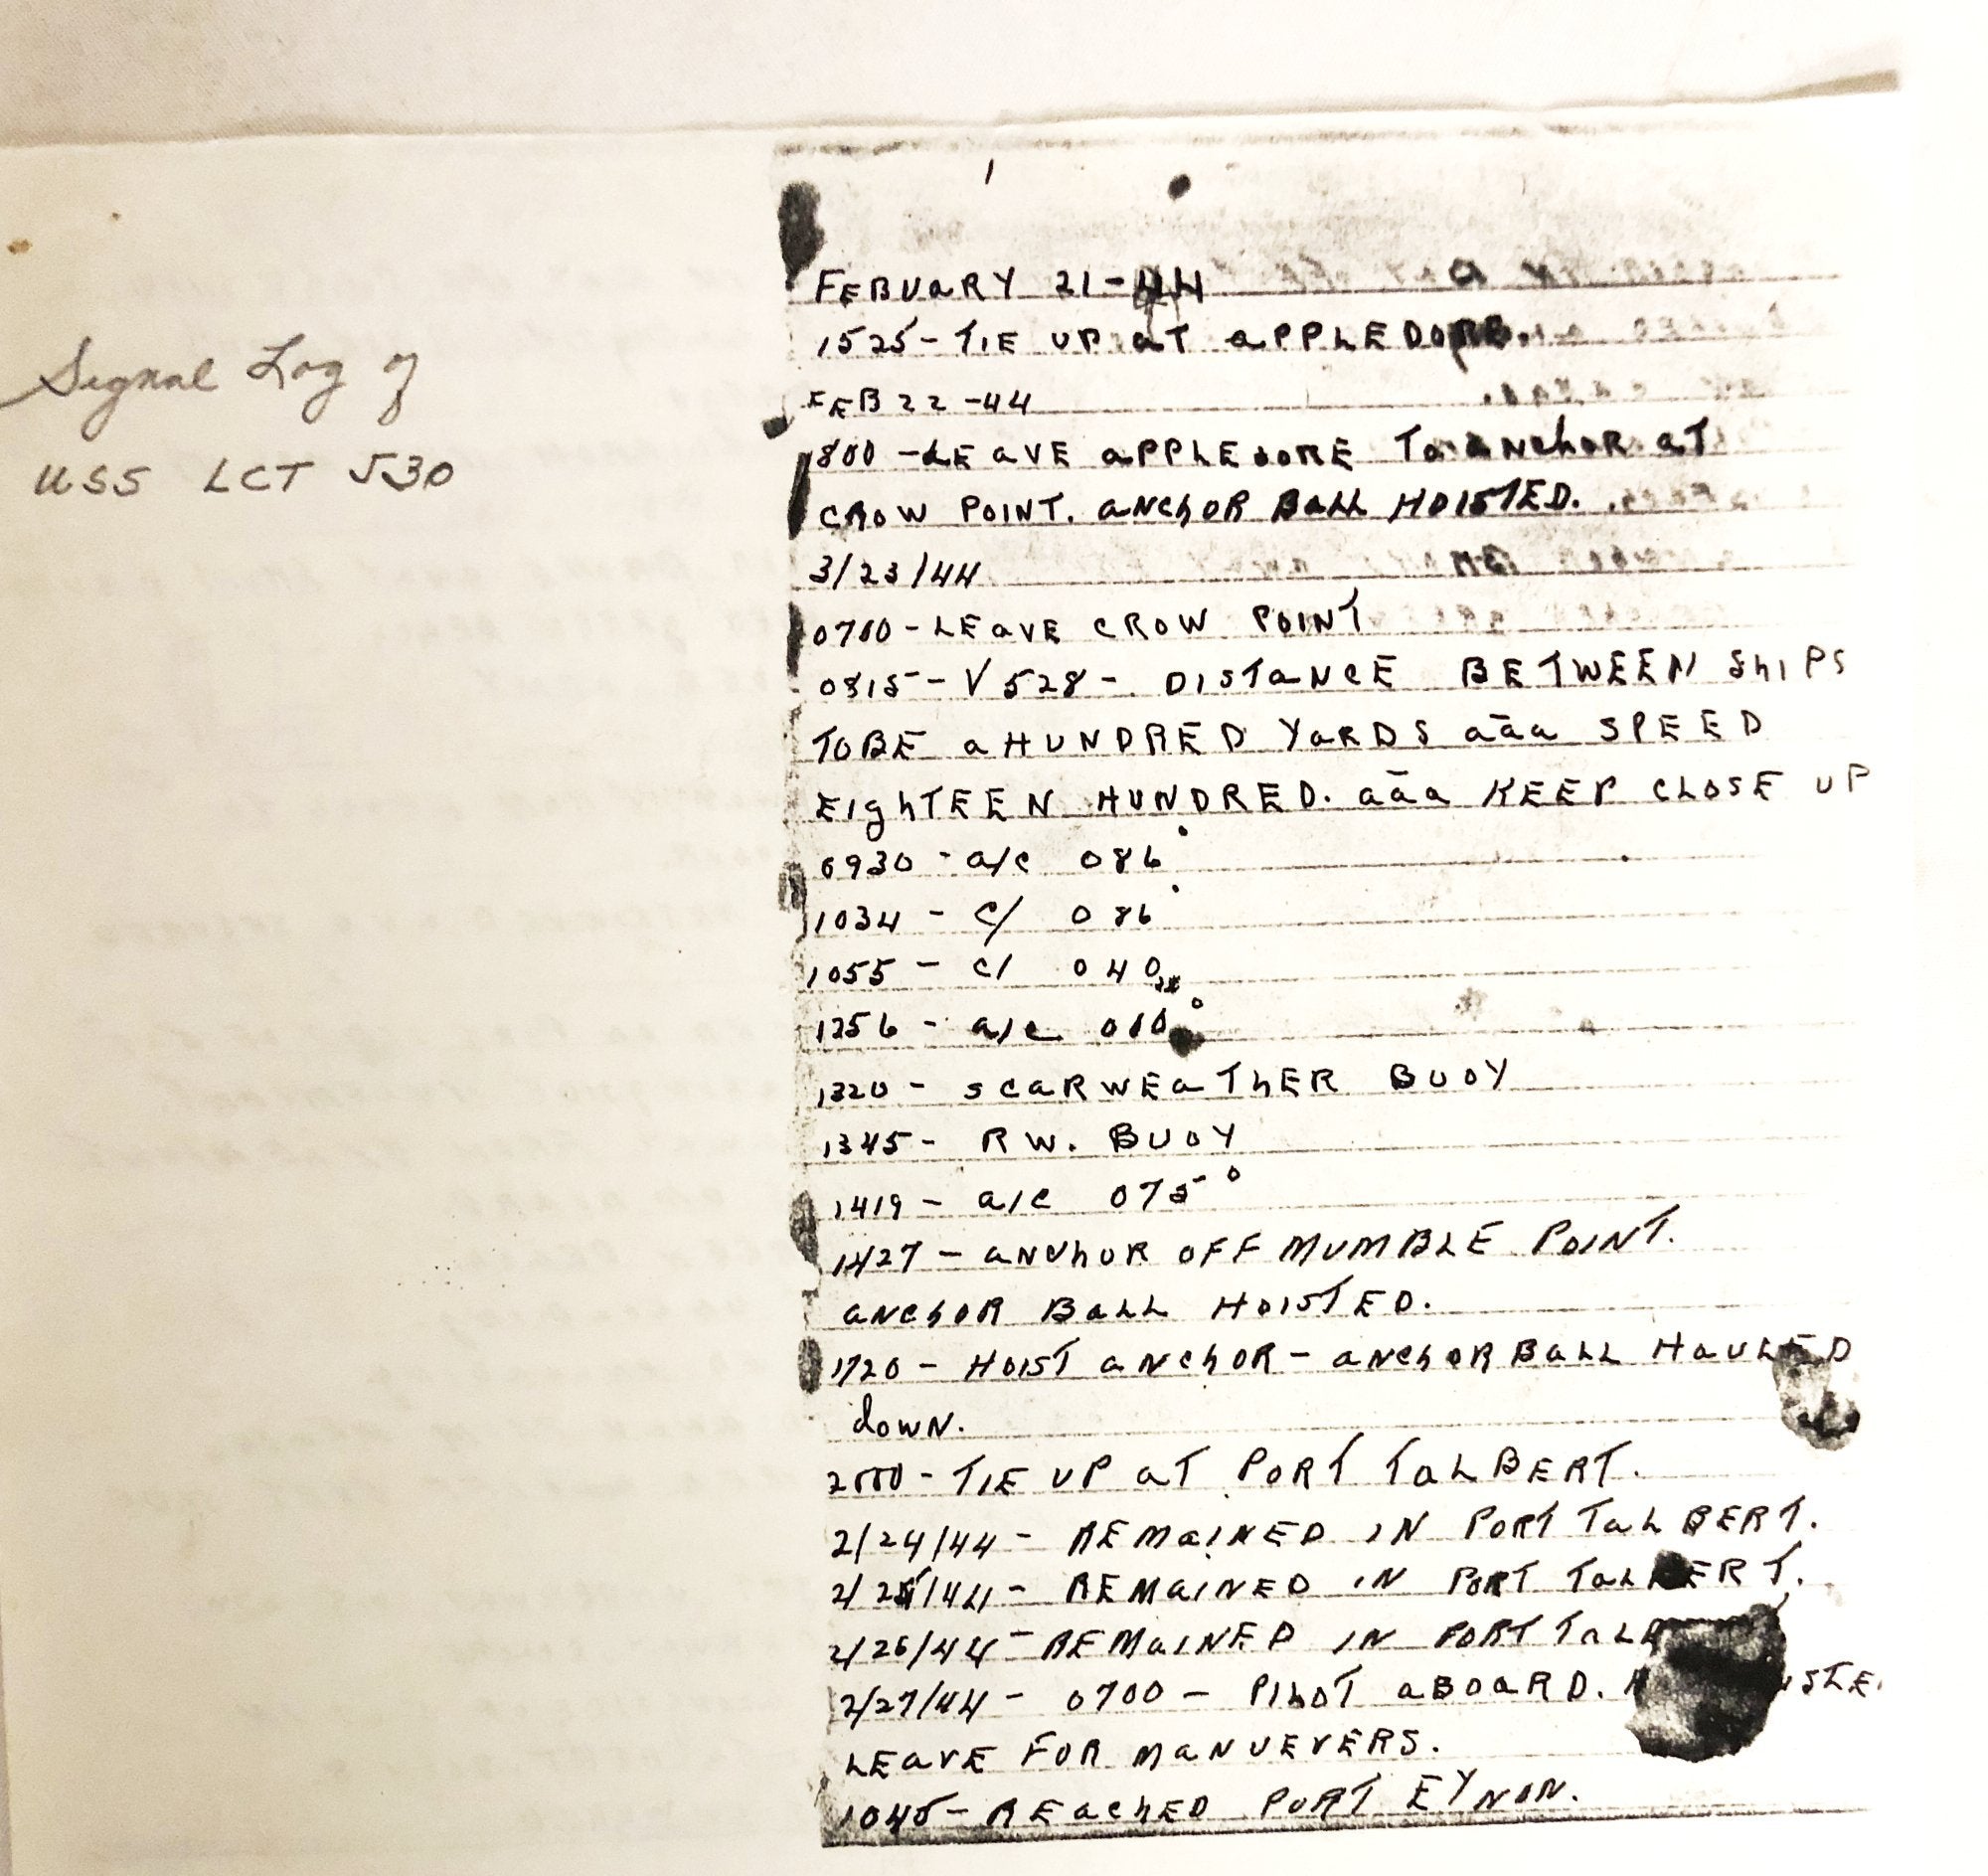 Signal Log of
USS LCT 530
1
FEBUARY 21-44
1525- TIE UP AT APPLEDORE.
FEB 22-44
1800 - LEAVE APPLEDORE TO ANCHOR AT
CROW POINT. ANCHOR BALL HOISTED.
3/23/44
0700- LEAVE CROW POINT
0815- V 528- DISTANCE BETWEEN SHIPS
TO BE A HUNDRED YARDS aāa SPEED
EIGHTEEN HUNDRED. aāa KEEP CLOSE UP
0930 - a/c 086°
1034 - c/ 086°
1055 - c/ 040
1256 - a/c 010°
1320 - SCARWEATHER BUOY
1345- RW. BUOY
1419- a/c 075°
1427 - ANCHOR OFF MUMBLE POINT.
ANCHOR BALL HOISTED.
1720 - HOIST ANCHOR - ANCHOR BALL HAULED
down.
2000- TIE UP AT PORT TALBERT.
2/24/44 - REMAINED IN PORT TALBERT.
2/25/44 - REMAINED IN PORT TALBERT.
2/26/44 - REMAINED IN PORT
2/27/44 - 0700 - PILOT ABOARD.
LEAVE FOR MANUEVERS.
1045- REACHED PORT EYNON.